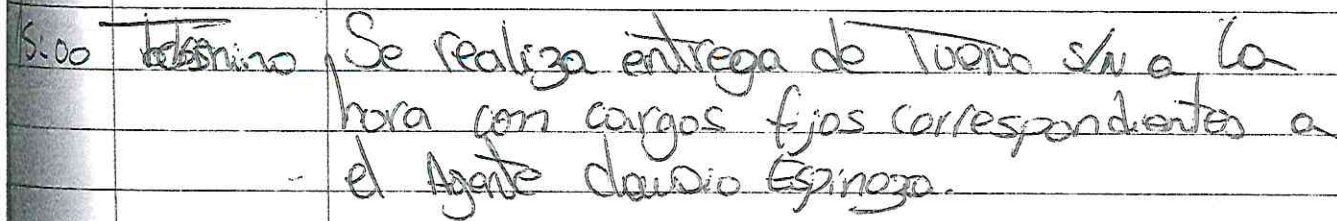 Se realiza entrega de Turno s/N a la
hora con cargos fijos correspondientes a
el Agente Claudio Espinoza.